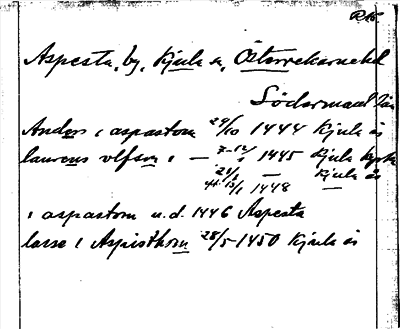 Aspesta, by, Kjula sn, Österrekarnehd
Södermanl. län
Anders i aspastom 24/10 1444 Kjula ås
laurens olfson i — 1445 Kjula kyrka
— Kjula ås
1448 —
i aspastom u.d. 1446 Aspesta
lasse i Aspisthom 28/5 1450 Kjula ås